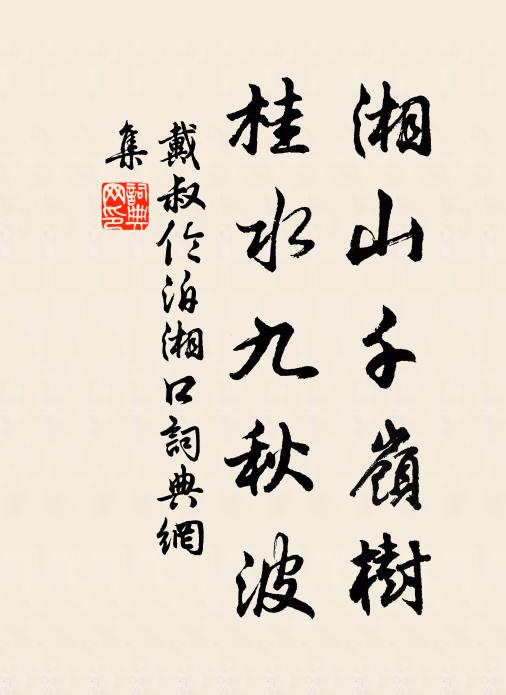 湘山千嶺樹
桂水九秋波
戴叔伦泊湘口詞典網
集
詞典網印